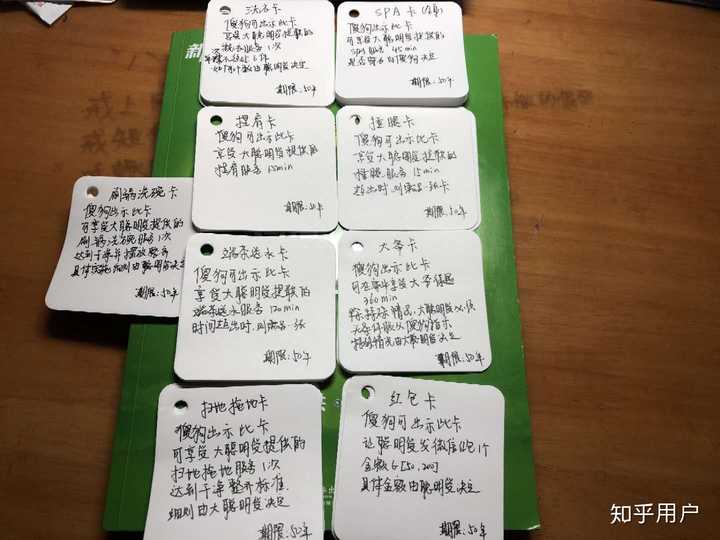 新
洗衣卡
傻狗可出示此卡
享受大聪明提供的
洗衣服务1次
期限:50年
SPA卡
傻狗可出示此卡
可享受大聪明提供的
SPA服务 45min
期限:50年
捏肩卡
傻狗可出示此卡
享受大聪明提供的
捏肩服务 15min
期限:50年
捶腿卡
傻狗可出示此卡
享受大聪明提供的
捶腿服务 15min
超出时,则需另一张卡
期限:50年
刷锅洗碗卡
傻狗出示此卡
可享受大聪明提供的
刷锅洗碗服务1次
达到干净并摆放整齐
具体实施细则由聪明决定
期限:50年
端茶送水卡
傻狗可出示此卡
享受大聪明提供的
端茶送水服务 120min
时间超出时,则需另一张
期限:50年
大爷卡
傻狗出示此卡
可在家中享受大爷待遇
360min
除特殊情况,大聪明必须
无条件服从傻狗指示
特殊情况由大聪明决定
期限:50年
扫地拖地卡
傻狗出示此卡
可享受大聪明提供的
扫地拖地服务1次
达到干净整齐标准
细则由大聪明决定
期限:50年
红包卡
傻狗可出示此卡
让聪明发微信红包1个
金额∈[50,200]
具体金额由聪明决定
期限:50年
知乎用户